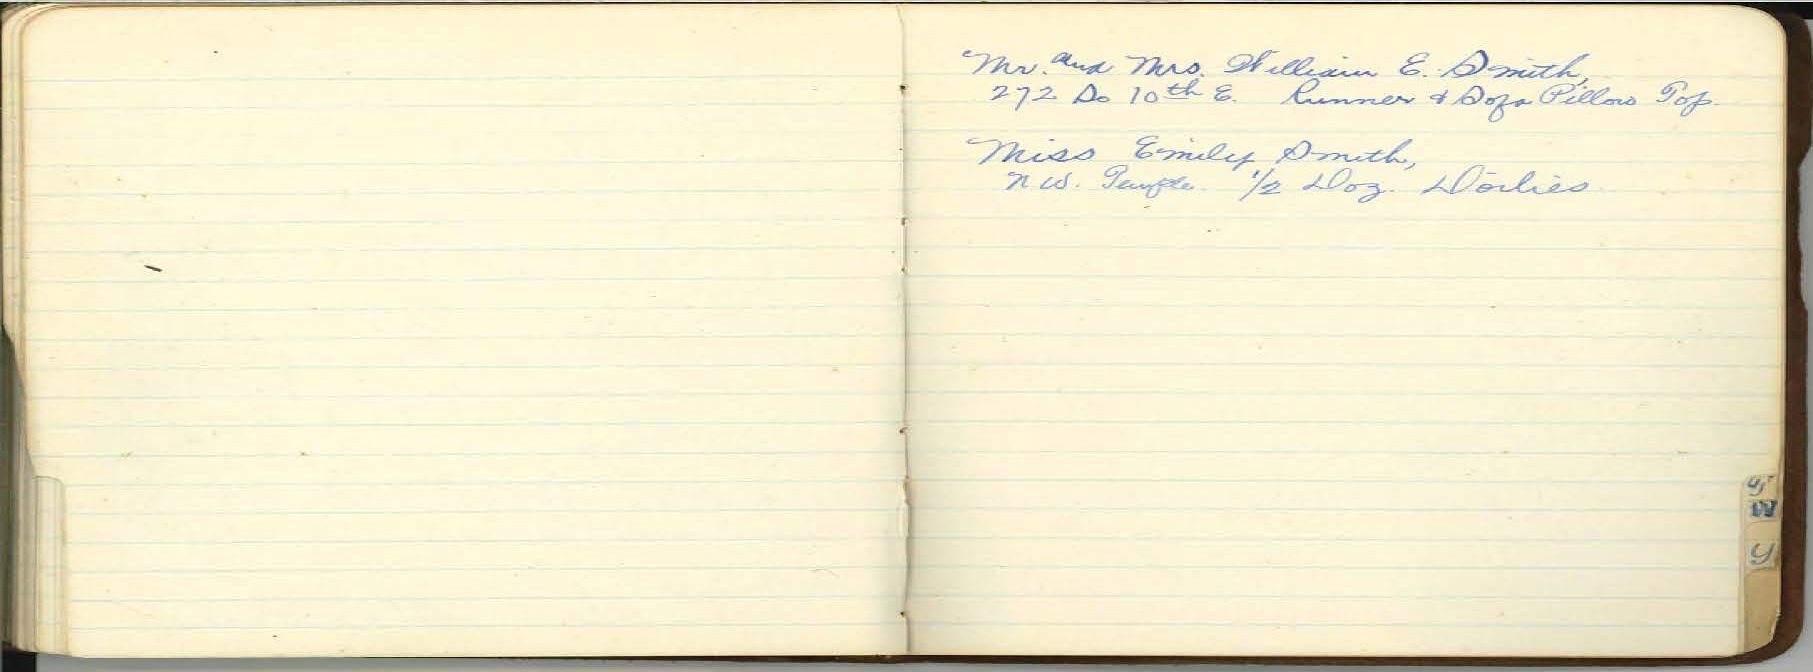 Mr. and Mrs. William E. Smith,
272 So 10th E. Runner & Sofa Pillow Top.
Miss Emily Smith,
N W. Temple. 1/2 Doz. Doilies
W
Y